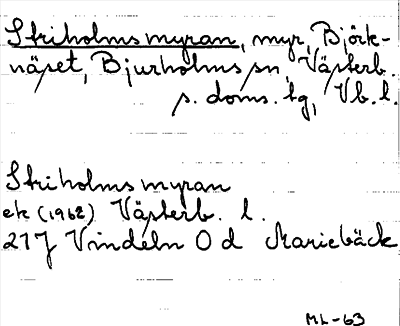 Striholmsmyran, myr, Björk-
näset, Bjurholms sn, Västerb.
s. doms. tg, Vb. l.
Striholmsmyran
ek (1962) Västerb. l.
21J Vindeln 0 d Mariebäck
ML-63